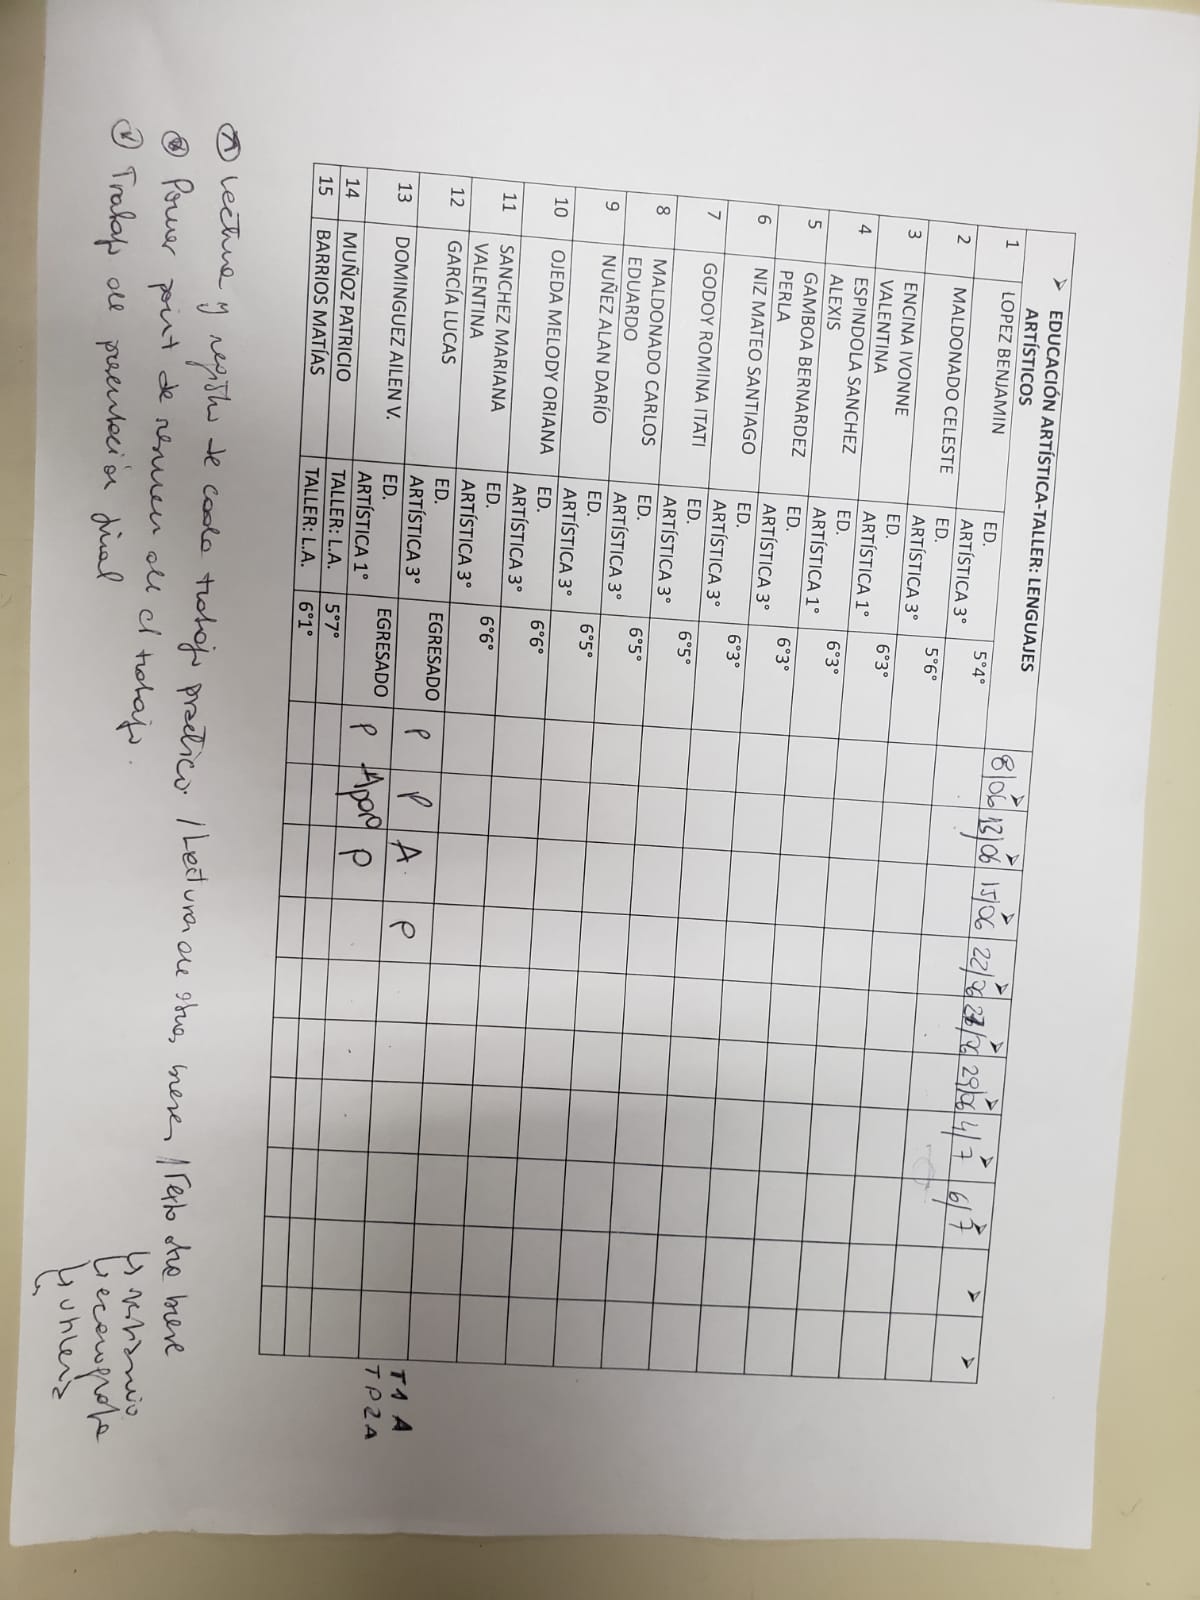 ➤ EDUCACIÓN ARTÍSTICA-TALLER: LENGUAJES
ARTÍSTICOS
➤ 8/06 ➤ 13/06 ➤ 15/06 ➤ 22/06 ➤ 27/06 ➤ 29/06 ➤ 4/7 ➤ 6/7 ➤ ➤
1 LOPEZ BENJAMIN ED. ARTÍSTICA 3° 5°4°
2 MALDONADO CELESTE ED. ARTÍSTICA 3° 5°6°
3 ENCINA IVONNE VALENTINA ED. ARTÍSTICA 1° 6°3°
4 ESPINDOLA SANCHEZ ALEXIS ED. ARTÍSTICA 1° 6°3°
5 GAMBOA BERNARDEZ PERLA ED. ARTÍSTICA 3° 6°3°
6 NIZ MATEO SANTIAGO ED. ARTÍSTICA 3° 6°3°
7 GODOY ROMINA ITATI ED. ARTÍSTICA 3° 6°5°
8 MALDONADO CARLOS EDUARDO ED. ARTÍSTICA 3° 6°5°
9 NUÑEZ ALAN DARÍO ED. ARTÍSTICA 3° 6°5°
10 OJEDA MELODY ORIANA ED. ARTÍSTICA 3° 6°6°
11 SANCHEZ MARIANA VALENTINA ED. ARTÍSTICA 3° 6°6°
12 GARCÍA LUCAS ED. ARTÍSTICA 3° EGRESADO P P A P T1 A
13 DOMINGUEZ AILEN V. ED. ARTÍSTICA 1° EGRESADO P P TP2A
14 MUÑOZ PATRICIO TALLER: L.A. 5°7°
15 BARRIOS MATÍAS TALLER: L.A. 6°1°
Lectura y registro de cada trabajo práctico. / Lectura de breve / Texto breve
Power point de resumen de el trabajo.
Trabajo de presentación final
↳ vestuario
↳ escenografía
↳ utilería